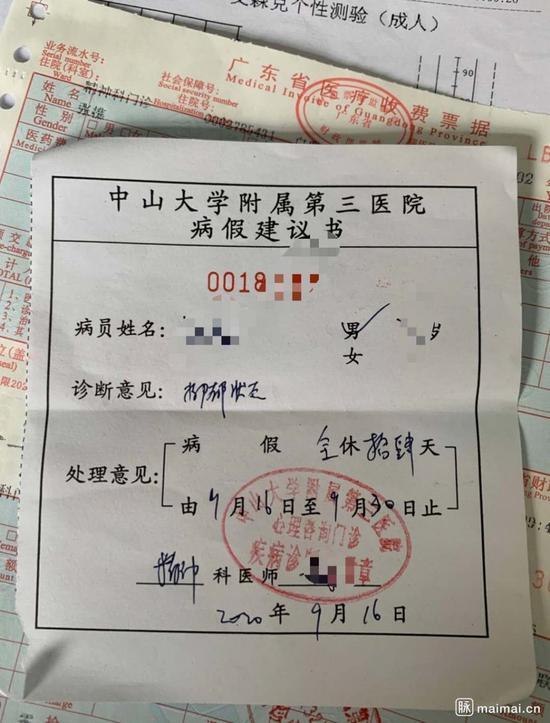 艾森克个性测验（成人）
90
业务流水号：
Serial number
住院(科室)：
Ward
精神科门诊
社会保障号：
Social security number
住院号：
Hospitalization
广东省医疗收费票据
Medical Invoice of Guangdong Province
姓名
Name
性别
Gender
男
医药费
Medical
中山大学附属第三医院
病假建议书
0018
病员姓名：
男
女
岁
诊断意见：抑郁状态
处理意见：
病假 全休拾肆天
由9月16日至9月30日止
中山大学附属第三医院
心理咨询门诊
疾病诊断
章
精神科医师
2020年9月16日
脉 maimai.cn